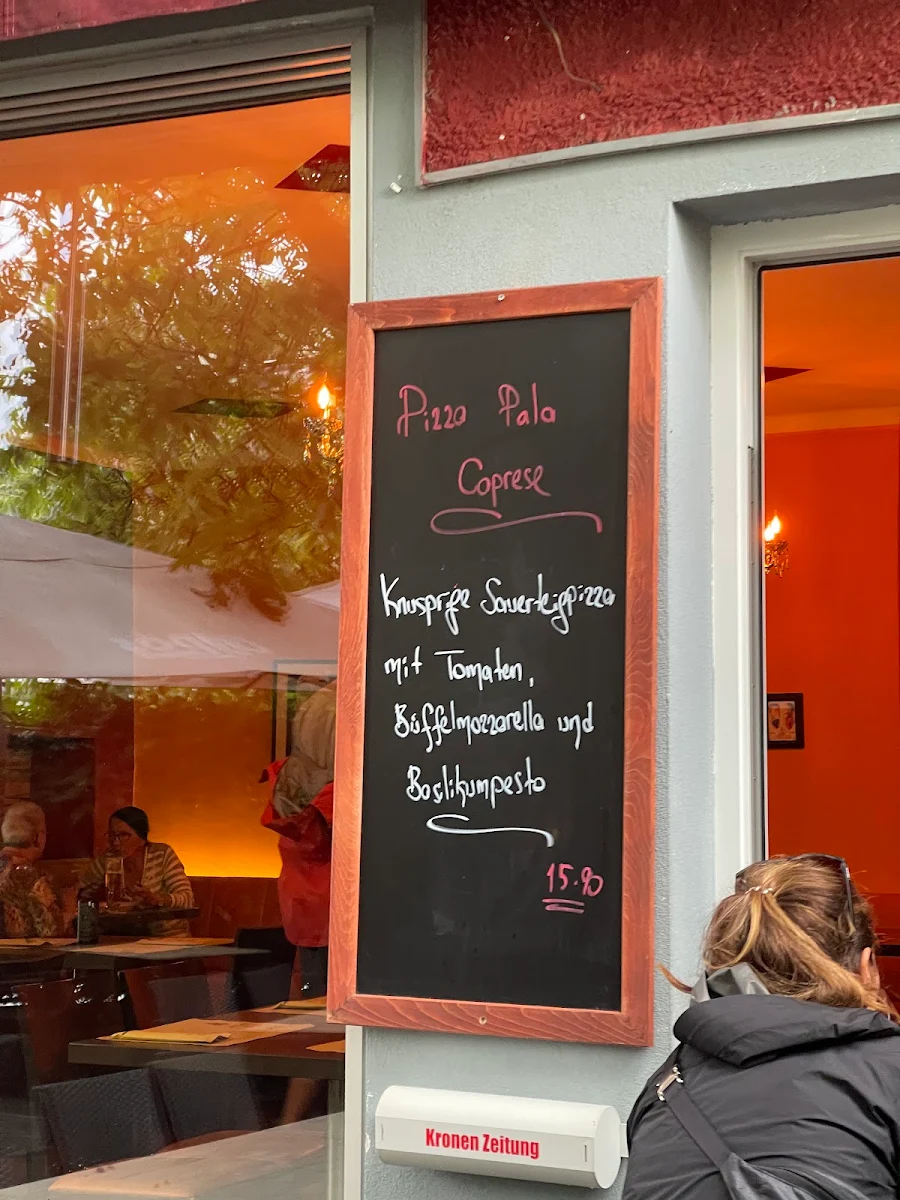 Pizza Pala
Caprese
Knusprige Sauerteigpizza
mit Tomaten,
Büffelmozzarella und
Basilikumpesto
15.90
Kronen Zeitung